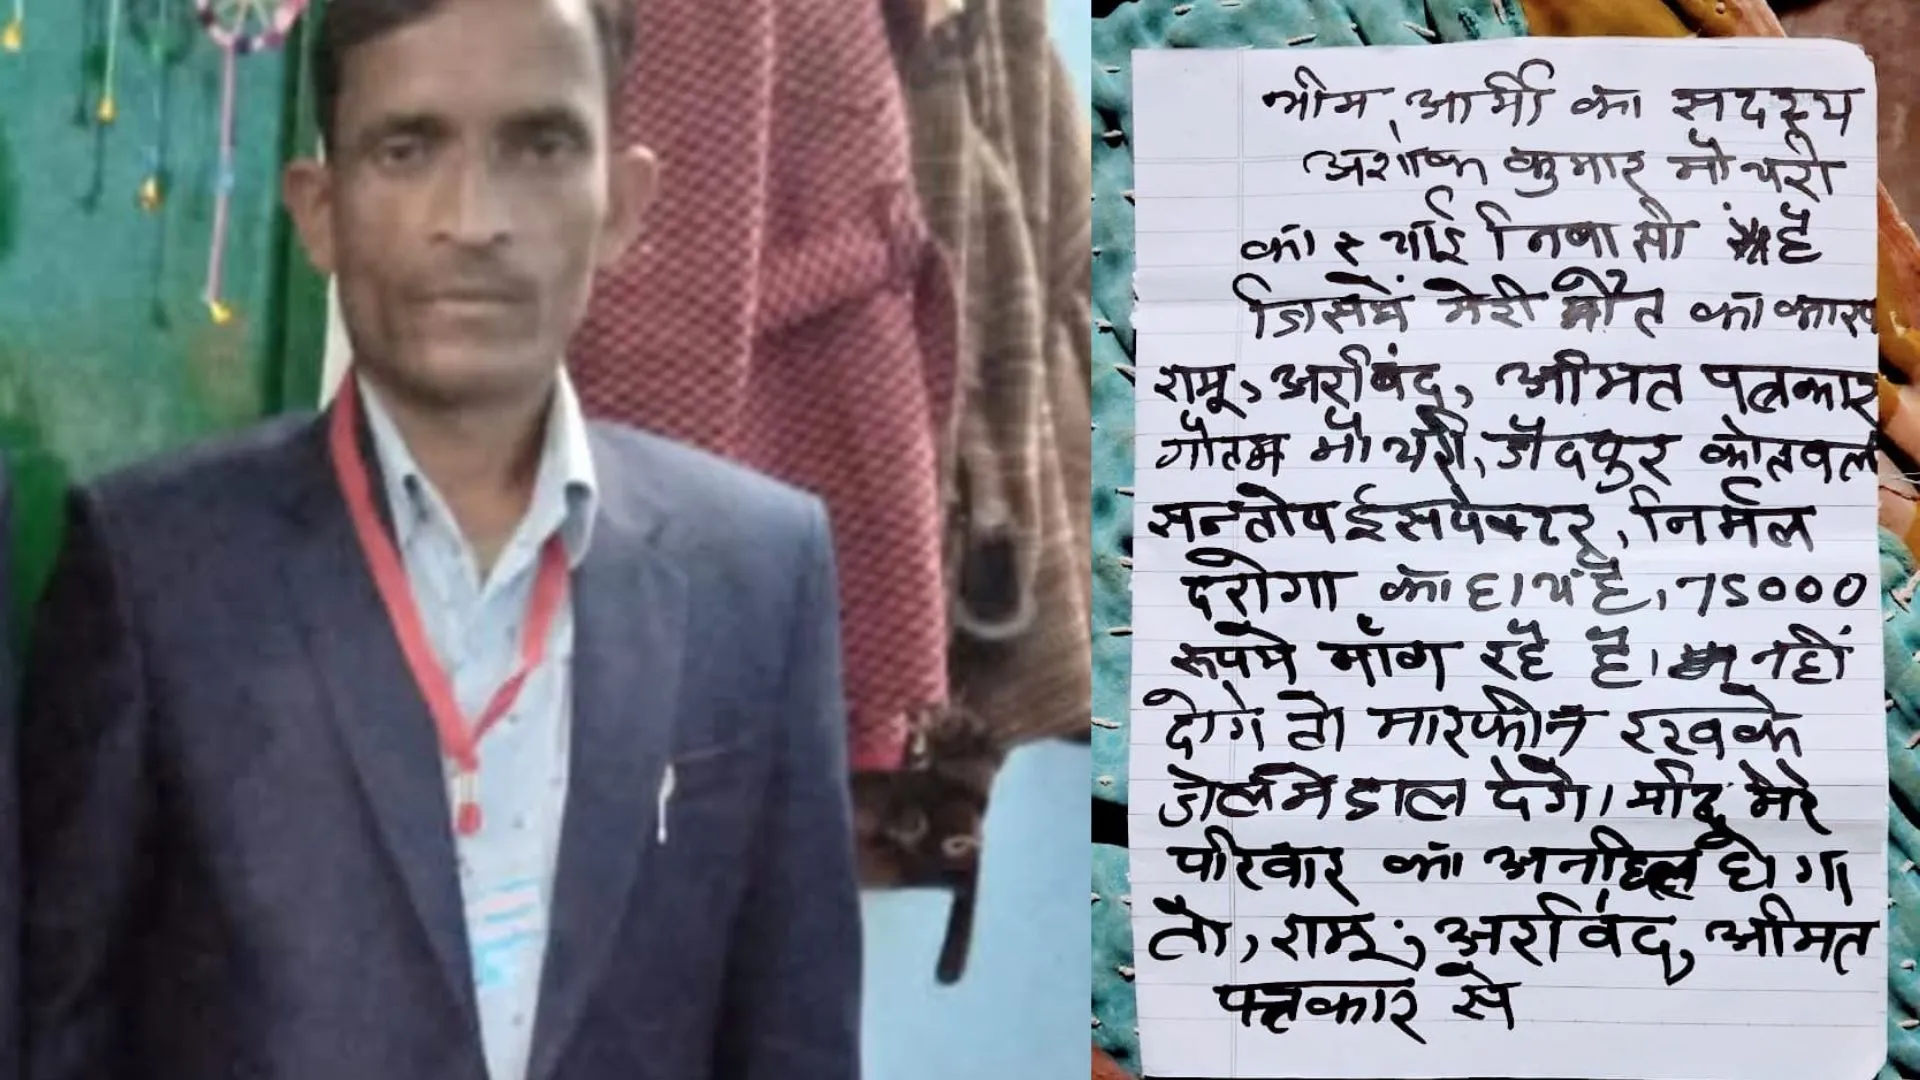 भीम आर्मी का सदस्य
अशोक कुमार मौयरी
का स्थाई निवासी है
जिसमें मेरी मौत का कारण
रामू, अरविंद, अमित पत्रकार
गौतम मौयरी, जैदपुर कोतवल
सन्तोष ईसपेक्टर, निर्मल
दरोगा का हाथ है, 75000
रूपये माँग रहै है। नहीं
देगे तो मारफीन रखके
जेल मे डाल देगे। मेरे
परिवार का होगा
तो, रामू, अरविंद, अमित
पत्रकार से